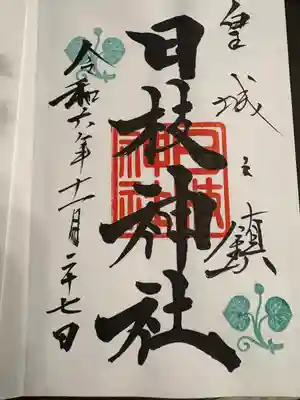 皇城之鎮
日枝神社
令和六年十一月二十七日
日枝神社